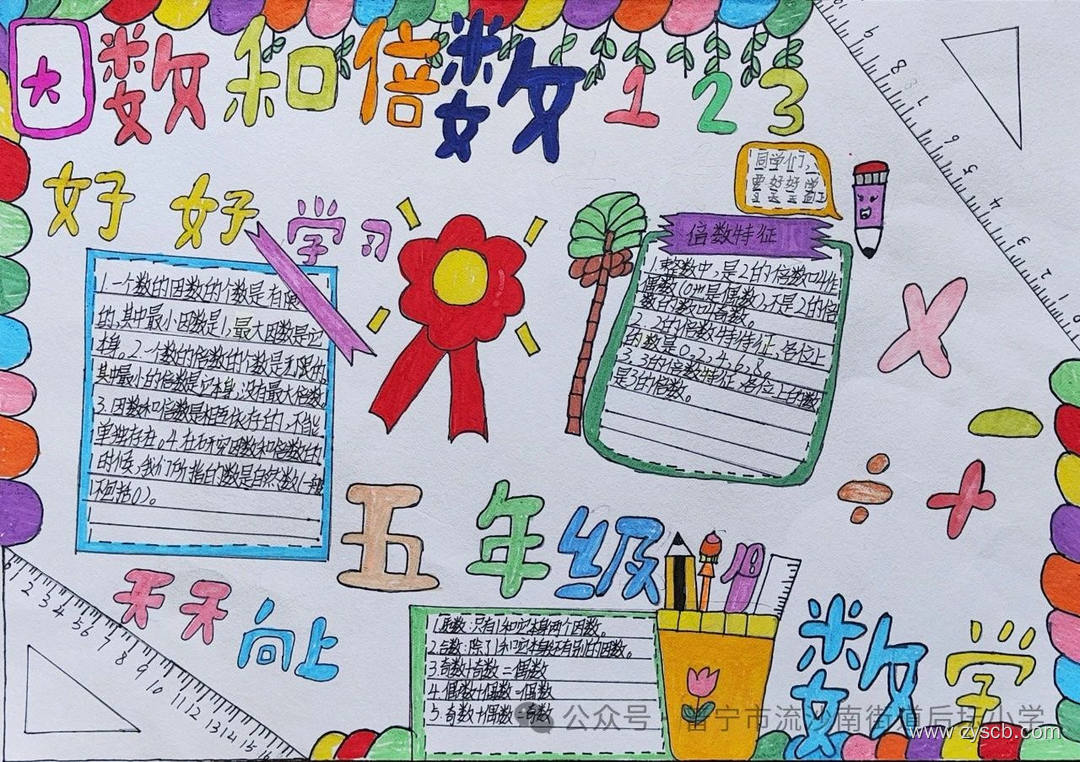 因数和倍数123
好好学习
同学们，
要好好学
倍数特征
1.一个数的因数的个数是有限
的，其中最小因数是1，最大因数是它
本身。2.一个数的倍数的个数是无限的
其中最小的倍数是它本身，没有最大倍数
3.因数和倍数是相互依存的，不能
单独存在。4.在研究因数和倍数的
时候，我们所指的数是自然数(一般
不包括0)。
1.整数中，是2的倍数叫作
偶数(0也是偶数)，不是2的倍
数的数叫奇数。
2.2的倍数特特征，各位上
的数是0,2,4,6,8。
3.3的倍数特征：各位上的数
是3的倍数。
五年级
天天向上
1.质数：只有1和它本身两个因数。
2.合数：除了1和它本身还有别的因数。
3.奇数+奇数=偶数
4.偶数+偶数=偶数
5.奇数+偶数=奇数
数学
1 2 3 4 5 6 7 8 9 10 11 12 13 14 15 16
公众号
南街道后坛小学
www.zyscb.com